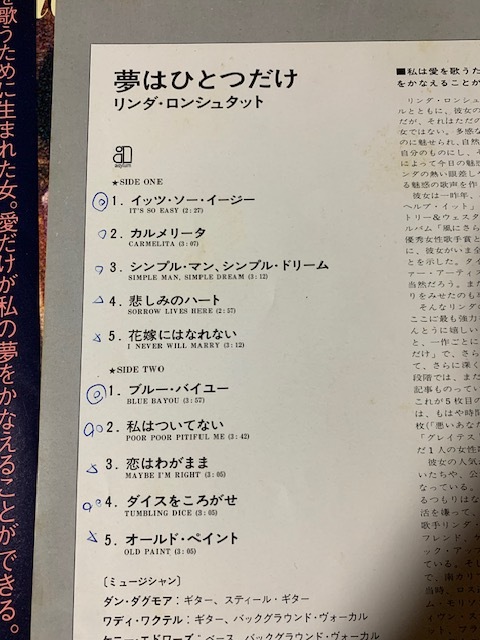 を歌うために生まれた女。愛だけが私の夢をかなえることができる。
夢はひとつだけ
リンダ・ロンシュタット
asylum
★SIDE ONE
1. イッツ・ソー・イージー
IT'S SO EASY (2:27)
2. カルメリータ
CARMELITA (3:07)
3. シンプル・マン、シンプル・ドリーム
SIMPLE MAN, SIMPLE DREAM (3:12)
4. 悲しみのハート
SORROW LIVES HERE (2:57)
5. 花嫁にはなれない
I NEVER WILL MARRY (3:12)
★SIDE TWO
1. ブルー・バイユー
BLUE BAYOU (3:57)
2. 私はついてない
POOR POOR PITIFUL ME (3:42)
3. 恋はわがまま
MAYBE I'M RIGHT (3:05)
4. ダイスをころがせ
TUMBLING DICE (3:05)
5. オールド・ペイント
OLD PAINT (3:05)
〔ミュージシャン〕
ダン・ダグモア：ギター、スティール・ギター
ワディ・ワクテル：ギター、バックグラウンド・ヴォーカル
ケニー・エドワーズ：ベース、バックグラウンド・ヴォーカル
■私は愛を歌うた
をかなえることか
リンダ・ロンシュ
ルとともに、彼女の
だが、それはただの
女ではない。多感な
のに魅せられ、自然
自分のものにし、そ
によって今日の魅惑
ンダの熱い眼差し
る魅惑の歌声を作
彼女は一昨年、
ヘルプ・イット」
トリー&ウェスタ
ルバム「風にさら
優秀女性歌手賞と
に、彼女がいま全
とを示した。タイ
ァー・アーティス
当然だろう。また
りをみせたのも
そんなリンダ
ここに最も強力
んとうに嬉しい
と、一作ごとに
だけ」で、さら
て、さらに深く
段階では、また
記事ものってい
これが5枚目の
は、もはや時間
枚(「悪いあなた
「グレイテス
だ1人の女性
彼女の人気
いたちや、公
なっている。
るつもりはな
活を嫌って、
歌手リンダ・
フレンド、ケ
ック・アップ
ている。そし
で、南カリフ
当時、ロス